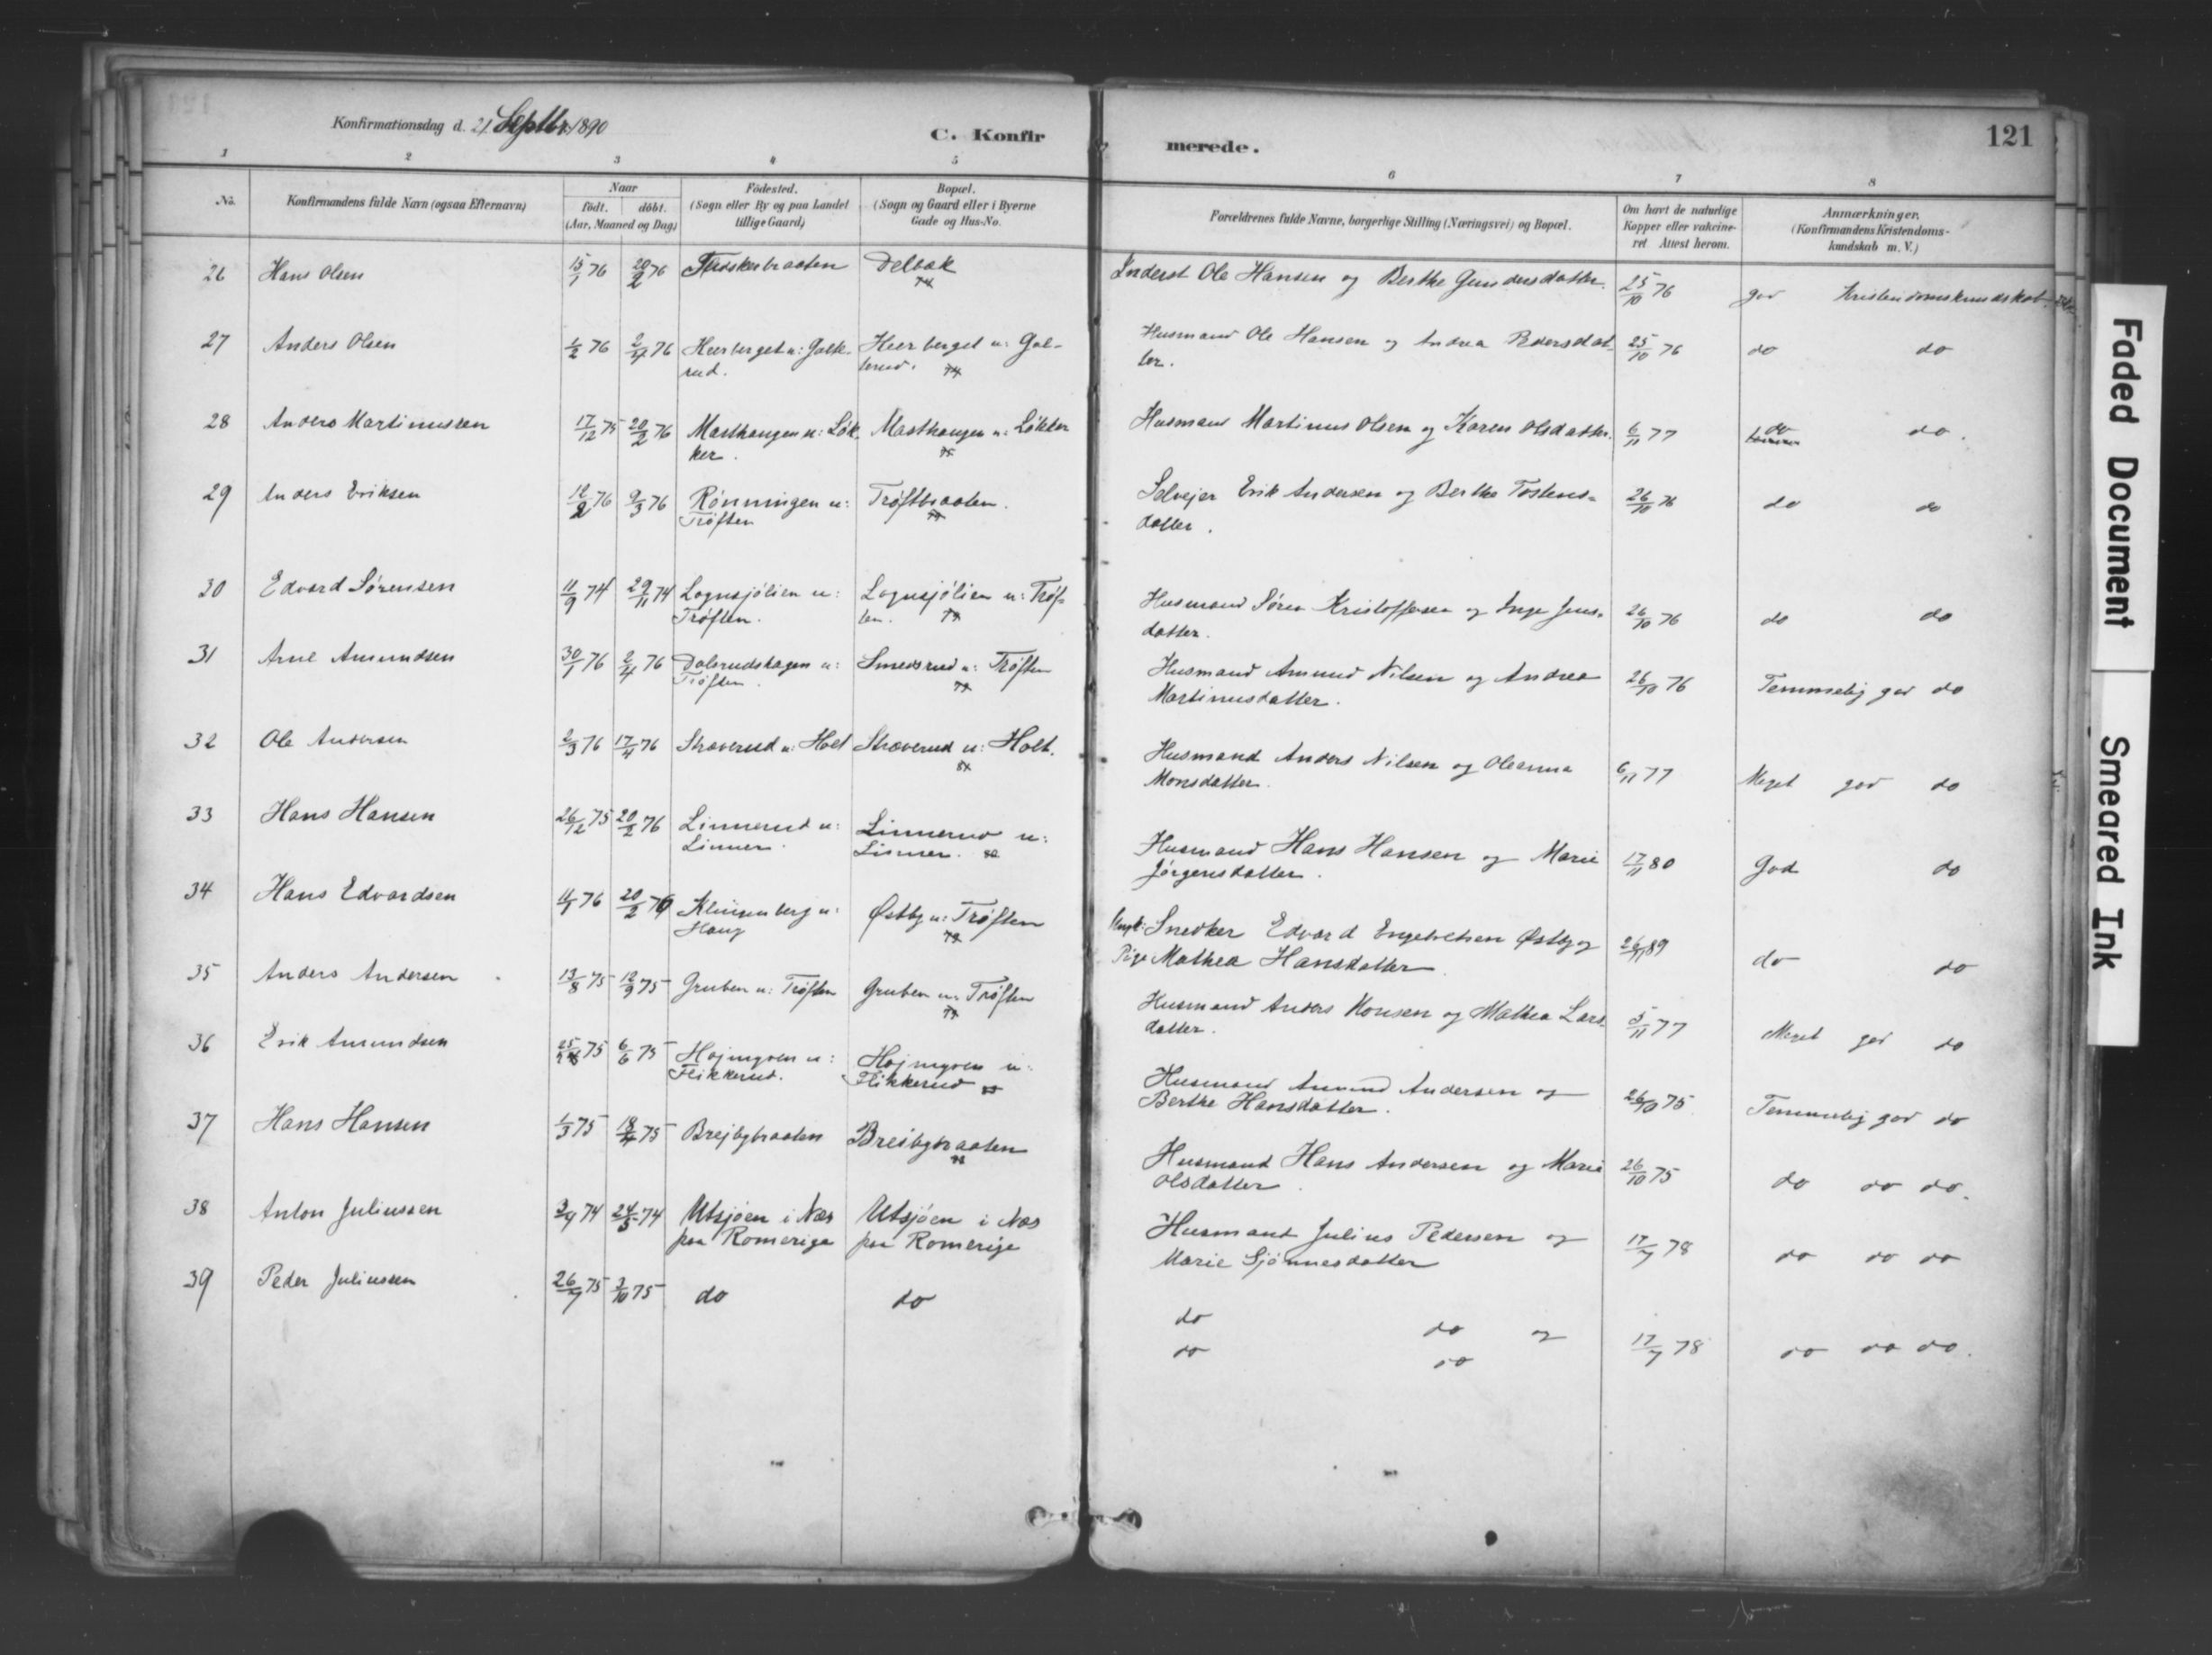 121
Konfirmationsdag d. 21 Septbr 1890
C. Konfirmerede.
1 2 3 4 5 6 7 8
No.
Konfirmandens fulde Navn (ogsaa Efternavn)
Naar
født. døbt.
(Aar, Maaned og Dag)
Fødested.
(Sogn eller By og paa Landet
tillige Gaard)
Bopæl.
(Sogn og Gaard eller i Byerne
Gade og Hus-No.
Forældrenes fulde Navne, borgerlige Stilling (Næringsvei) og Bopæl.
Om havt de naturlige
Kopper eller vakcine-
ret Attest herom.
Anmærkninger.
(Konfirmandens Kristendoms-
kundskab m. V.)
26 Hans Olsen 15/1 76 20/2 76 Delbak Inderst Ole Hansen og Berthe Gundersdatter. 25/10 76 god Kristendomskundskab
27 Anders Olsen 1/2 76 2/4 76 Husmand Ole Hansen og Andrea Pedersdat- 25/10 76 do do
rud. ter.
28 Anders Martinussen 17/12 75 20/2 76 Masthaugen u: Løk- Masthaugen u: Løkker Husmand Martinus Olsen og Karen Olsdatter. 6/11 77 do do.
ker.
29 Anders Eriksen 12/2 76 9/3 76 Rønningen u: Trøftbraaten. Selvejer Erik Andersen og Berthe Tostens- 26/10 76 do do
Trøften datter.
30 Edvard Sørensen 11/9 74 29/11 74 Lognsjølien u: Lognsjølien u: Trøf- Husmand Søren Kristoffersen og Inge Jens- 26/10 76 do do
Trøften. ten. datter.
31 Arne Amundsen 30/1 76 2/4 76 Dalsrudshagen u: Smedsrud u: Trøften Husmand Amund Nilsen og Andrea 26/10 76 Temmelig god do
Trøften. Martinusdatter.
32 Ole Andersen 2/3 76 17/4 76 Skræverud u: Holt Skræverud u: Holt. Husmand Anders Nilsen og Oleanna 6/11 77 Meget god do
Monsdatter.
33 Hans Hansen 26/12 75 20/2 76 Linnerud u: Linnerud u: Husmand Hans Hansen og Marie 17/11 80 God do
Linner. Linner. Jørgensdatter.
34 Hans Edvardsen 11/1 76 20/2 76 Klingenberg u: Østby u: Trøften Ungk: Snedker Edvard Engebretsen Østby og 26/11 89 do do
Haug Pige Mathea Hansdatter
35 Anders Andersen 13/8 75 12/9 75 Gruben u: Trøften Gruben u: Trøften Husmand Anders Monsen og Mathea Lars- 5/11 77 Meget god do
datter.
36 Erik Amundsen 75 6/6 75 Højmyren u: Højmyren u: Husmand Amund Andersen og 26/10 75 Temmelig god do
Flikkerud. Flikkerud Berthe Hansdatter.
37 Hans Hansen 1/3 75 18/4 75 Brejbybraaten Breibybraaten Husmand Hans Andersen og Marie 26/10 75 do do do.
Olsdatter.
38 Anton Juliussen 74 24/5 74 Utsjøen i Næs Utsjøen i Næs Husmand Julius Pedersen og 17/7 78 do do do
paa Romerige paa Romerige Marie Sjønnesdatter
39 Peder Juliussen 26/7 75 3/10 75 do do do do og 17/7 78 do do do.
do do
Faded Document
Smeared Ink